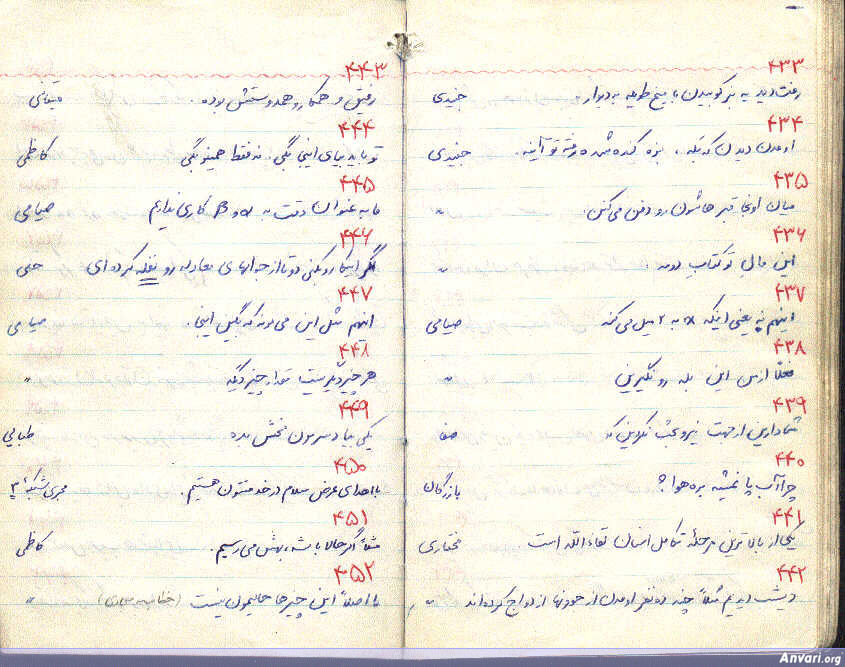 ۴۳۳
رفت دید یه نیز کوبیدن با میخ طویله به دیوار جنیدی
۴۳۴
اومدن دیدن که بَله، بزه کَنده شده رفته تو آینه. جنیدی
۴۳۵
میان اونجا قبر هاشون رو دفن می کنن. "
۴۳۶
این مالِ تو کتابِ دومه "
۴۳۷
اینهم یه یعنی اینکه x به ۲ میل می کنه صیامی
۴۳۸
فعلاً ازمن این بله رو نگیرین "
۴۳۹
شما دارین از جهت نیرو عجب نکردین که صفا
۴۴۰
چرا آب پا نمیشه بره هوا؟ بازرگان
۴۴۱
یکی از بالاترین مرحلهٔ تکامل انسان لقاءالله است مختاری
۴۴۲
دیشب دیدیم مثلاً چند ده نفر اومدن از حوونها ازدواج کرده اند "
۴۴۳
رفیق و همکار و همدوستش بوده.
۴۴۴
تو باید بیای اینجا بگی. نه فقط همینو بگی کاظمی
۴۴۵
ما به عنوان دقت به α و β کاری نداریم صیامی
۴۴۶
اگر اینکار رو بکنی دو تا از جوابهای معادله رو نفله کرده ای
۴۴۷
اینهم مثل این می مونه که بگین اینی. صیامی
۴۴۸
هر چیز دیگریست مقدار چیز دیگه "
۴۴۹
یکی بیاد سرمون فحش بده طبایی
۴۵۰
با اهدای عرض سلام در خدمتتون هستیم. مجری شبکهٔ ۲
۴۵۱
مثلاً اگر حالا باشه، بهش می رسیم. کاظمی
۴۵۲
ما اصلاً این چیزها حالیمون نیست "
Anvari.org